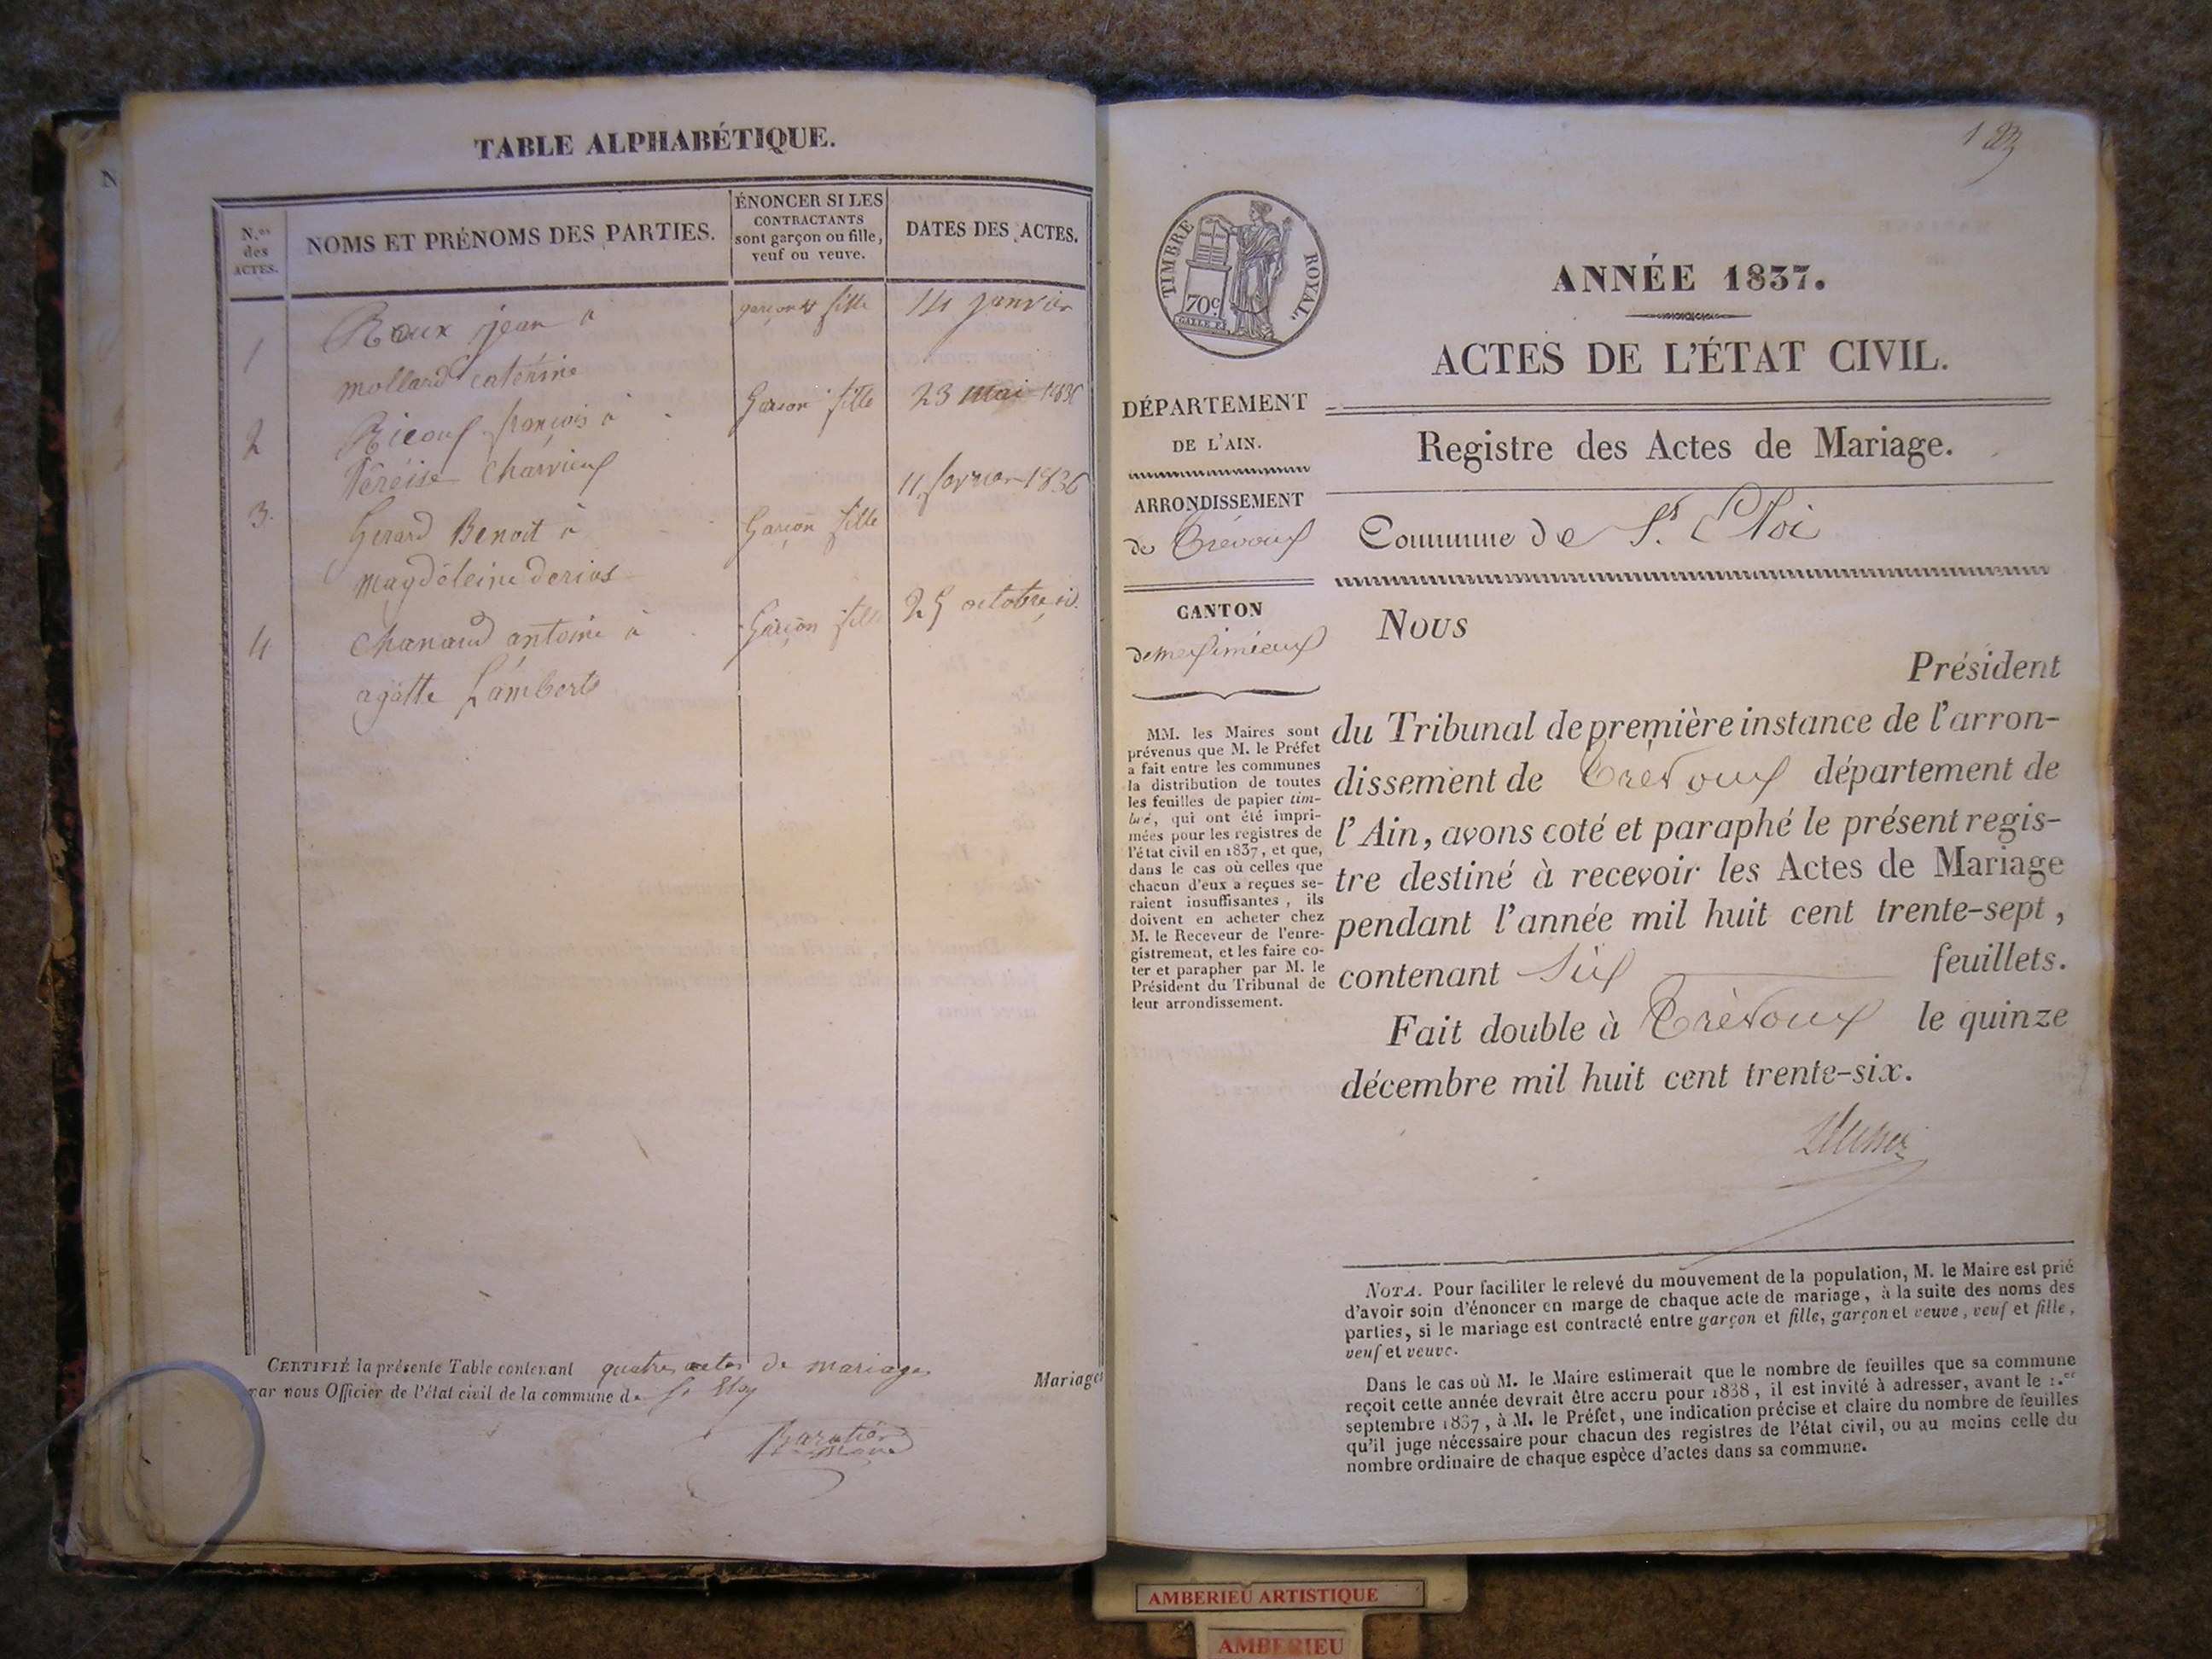 TABLE ALPHABÉTIQUE.
N.os des ACTES.
NOMS ET PRÉNOMS DES PARTIES.
ÉNONCER SI LES
CONTRACTANTS
sont garçon ou fille,
veuf ou veuve.
DATES DES ACTES.
1 Roux jean à garçon et fille 14 janvier
mollard caterine
2 Ricouf françois à Garson fille 23 mai 1836
Téréise Charvieux
3. Gerard Benoit à Garçon fille 11 fevrier 1836
magdeleine derias
4 Chanaud antoine à Garçon fille 25 octobre id.
agatte Lamberts
CERTIFIÉ la présente Table contenant quatres actes de mariages Mariages
par nous Officier de l'état civil de la commune de St Eloy
Baratier
maire
TIMBRE ROYAL.
70c.
ANNÉE 1837.
ACTES DE L'ÉTAT CIVIL.
DÉPARTEMENT
DE L'AIN.
ARRONDISSEMENT
de Trévoux
CANTON
de meximieux
MM. les Maires sont
prévenus que M. le Préfet
a fait entre les communes
la distribution de toutes
les feuilles de papier tim-
bré, qui ont été impri-
mées pour les registres de
l'état civil en 1837, et que,
dans le cas où celles que
chacun d'eux a reçues se-
raient insuffisantes, ils
doivent en acheter chez
M. le Receveur de l'enre-
gistrement, et les faire co-
ter et parapher par M. le
Président du Tribunal de
leur arrondissement.
Registre des Actes de Mariage.
Commune de St. Eloi
Nous
Président
du Tribunal de première instance de l'arron-
dissement de Trévoux département de
l'Ain, avons coté et paraphé le présent regis-
tre destiné à recevoir les Actes de Mariage
pendant l'année mil huit cent trente-sept,
contenant Six feuillets.
Fait double à Trévoux le quinze
décembre mil huit cent trente-six.
NOTA. Pour faciliter le relevé du mouvement de la population, M. le Maire est prié
d'avoir soin d'énoncer en marge de chaque acte de mariage, à la suite des noms des
parties, si le mariage est contracté entre garçon et fille, garçon et veuve, veuf et fille,
veuf et veuve.
Dans le cas où M. le Maire estimerait que le nombre de feuilles que sa commune
reçoit cette année devrait être accru pour 1838, il est invité à adresser, avant le 1.er
septembre 1837, à M. le Préfet, une indication précise et claire du nombre de feuilles
qu'il juge nécessaire pour chacun des registres de l'état civil, ou au moins celle du
nombre ordinaire de chaque espèce d'actes dans sa commune.
AMBERIEU ARTISTIQUE
AMBERIEU